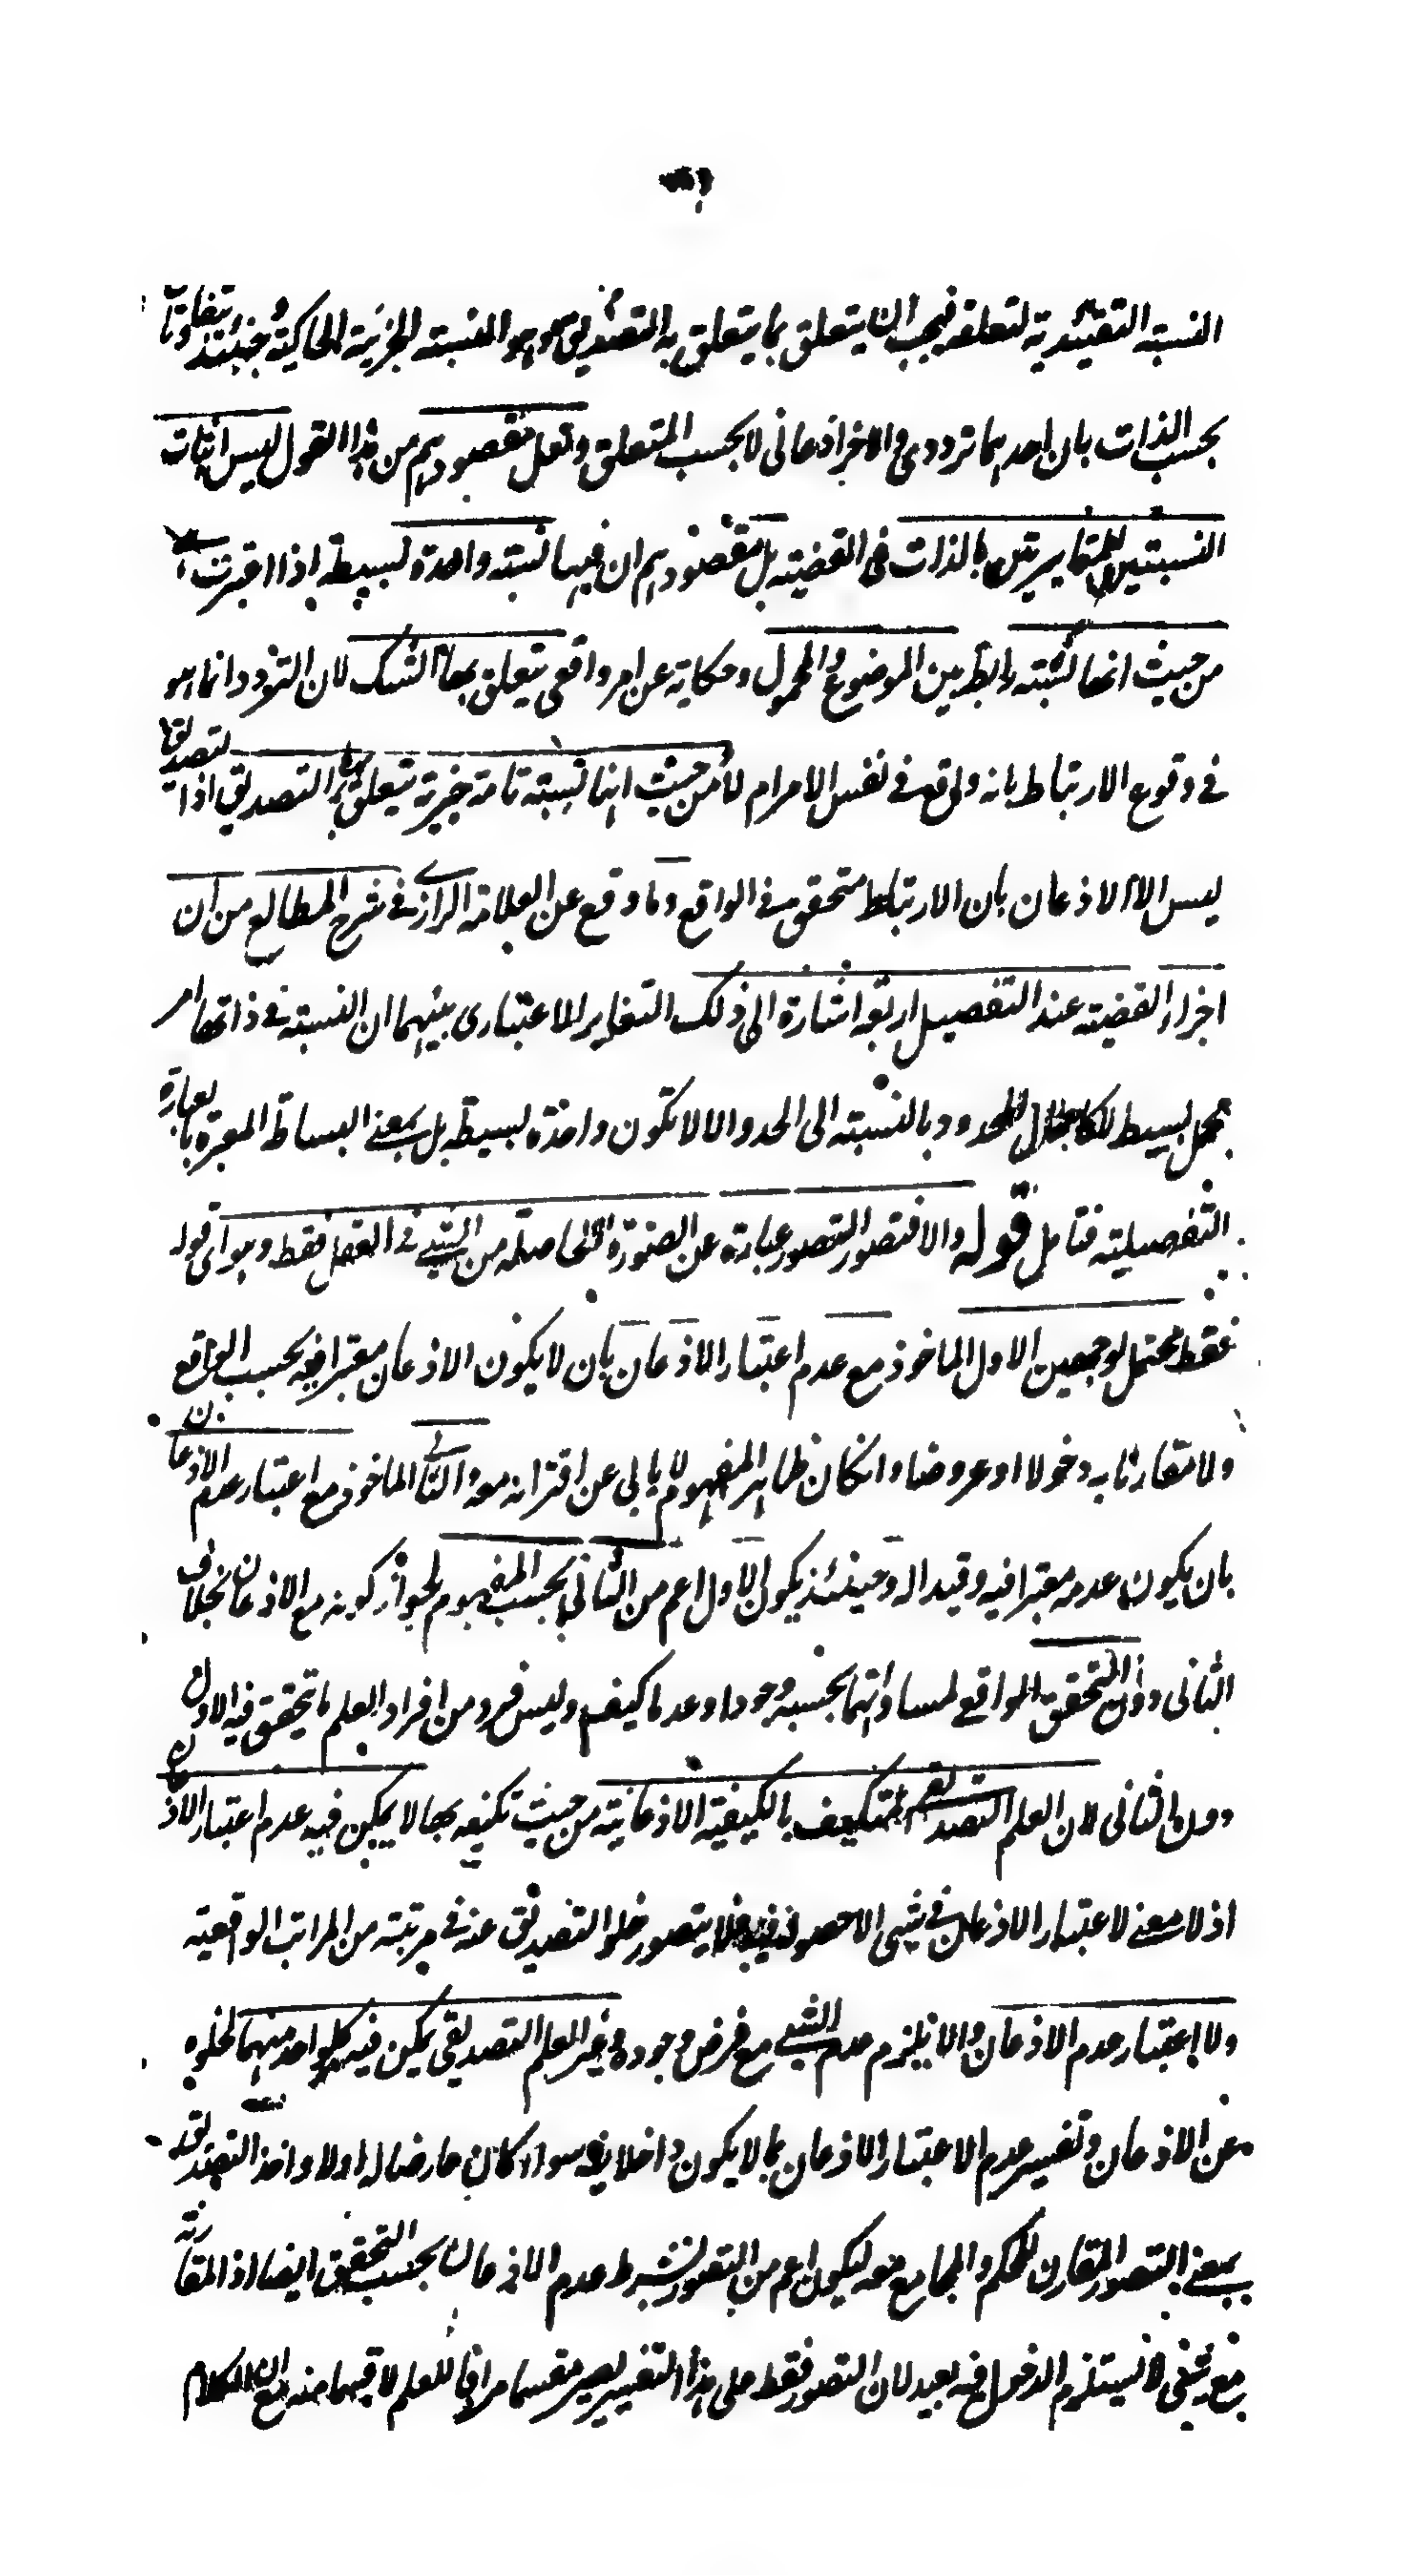 النسبة التقييدية لتعلقه فيجب ان يتعلق بما يتعلق به التصديق وهو النسبة الخبرية الحاكية فحينئذ يتفاوتان
بحسب الذات بان احدهما ترددى والاخر اذعانى لا بحسب المتعلق ولعل مقصودهم من هذا القول ليس اثبات
النسبتين المتغايرتين بالذات فى القضية بل مقصودهم ان فيها نسبة واحدة بسيطة اذا اعتبرت
من حيث انها نسبة رابطة بين الموضوع والمحمول وحكاية عن امر واقعى يتعلق بها الشك لان التردد انما هو
فى وقوع الارتباط بانه واقع فى نفس الامر ام لا ومن حيث انها نسبة تامة خبرية يتعلق بها التصديق اذ التصديق
ليس الا الاذعان بان الارتباط متحقق فى الواقع وما وقع عن العلامة الرازى فى شرح المطالع من ان
اجزاء القضية عند التفصيل اربعة اشارة الى ذلك التغاير الاعتبارى بينهما ان النسبة فى ذاتها امر
مجمل بسيط كاجمال المحدود بالنسبة الى الحد والا لا تكون واحدة بسيطة بل بمعنى البساطة المعبرة بالعبارة
التفصيلية فتامل قوله والا فتصور التصور عبارة عن الصورة الحاصلة من الشئ فى العقل فقط وهو اى قوله
فقط محتمل لوجهين الاول الماخوذ مع عدم اعتبار الاذعان بان لا يكون الاذعان معتبرا فيه بحسب الواقع
ولا مقارنا به دخولا او عروضا وانكان ظاهر المفهوم لا يابى عن اقترانه معه والثانى الماخوذ مع اعتبار عدم الاذعان
بان يكون عدمه معتبرا فيه وقيدا له وحينئذ يكون الاول اعم من الثانى بحسب المفهوم لجواز كونه مع الاذعان بخلاف
الثانى دون التحقق الواقعى لمساواتهما بحسبه وجودا وعدما كيف وليس فرد من افراد العلم ما يتحقق فيه الاول
دون الثانى لان العلم التصديقى المتكيف بالكيفية الاذعانية من حيث تكيفه بها لا يمكن فيه عدم اعتبار الاذعان
اذ لا معنى لاعتبار الاذعان فى شئ الا حصوله فيه فلا يتصور خلو التصديق عنه فى مرتبة من المراتب الواقعية
ولا اعتبار عدم الاذعان والا يلزم عدم الشئ مع فرض وجوده وغير العلم التصديقى يمكن فيه كل واحد منهما لخلوه
عن الاذعان وتفسير عدم الاعتبار الاذعان بما لا يكون داخلا فيه سواء كان عارضا له اولا واخذ التصديق
بمعنى التصور المقارن للحكم والمجامع معه ليكون اعم من التصور بشرط عدم الاذعان بحسب التحقق ايضا اذ المقارنة
مع شئ لا يستلزم الدخول فيه بعيد لان التصور فقط على هذا التفسير يصير مقسما مرادفا للعلم لا قسيما منه مع ان الكلام